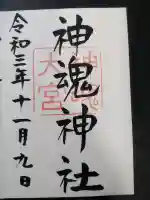 神魂神社
神魂
大宮
令和三年十一月九日